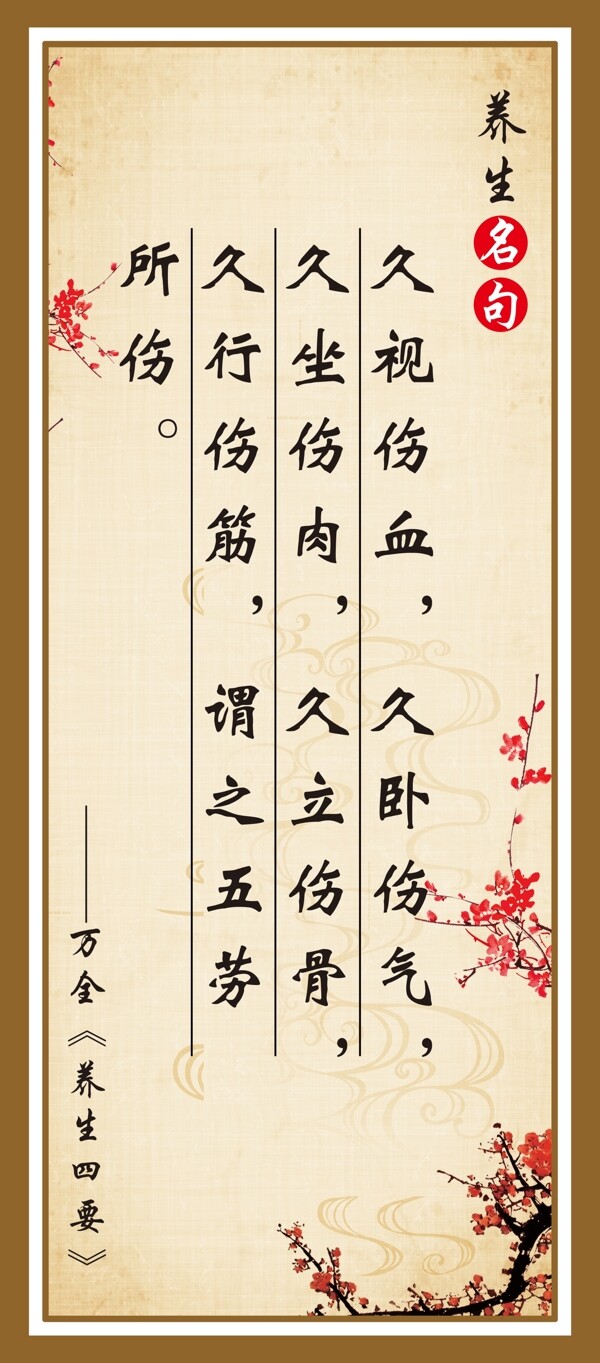 养生名句
久视伤血，久卧伤气，
久坐伤肉，久立伤骨，
久行伤筋，谓之五劳
所伤。
——万全《养生四要》